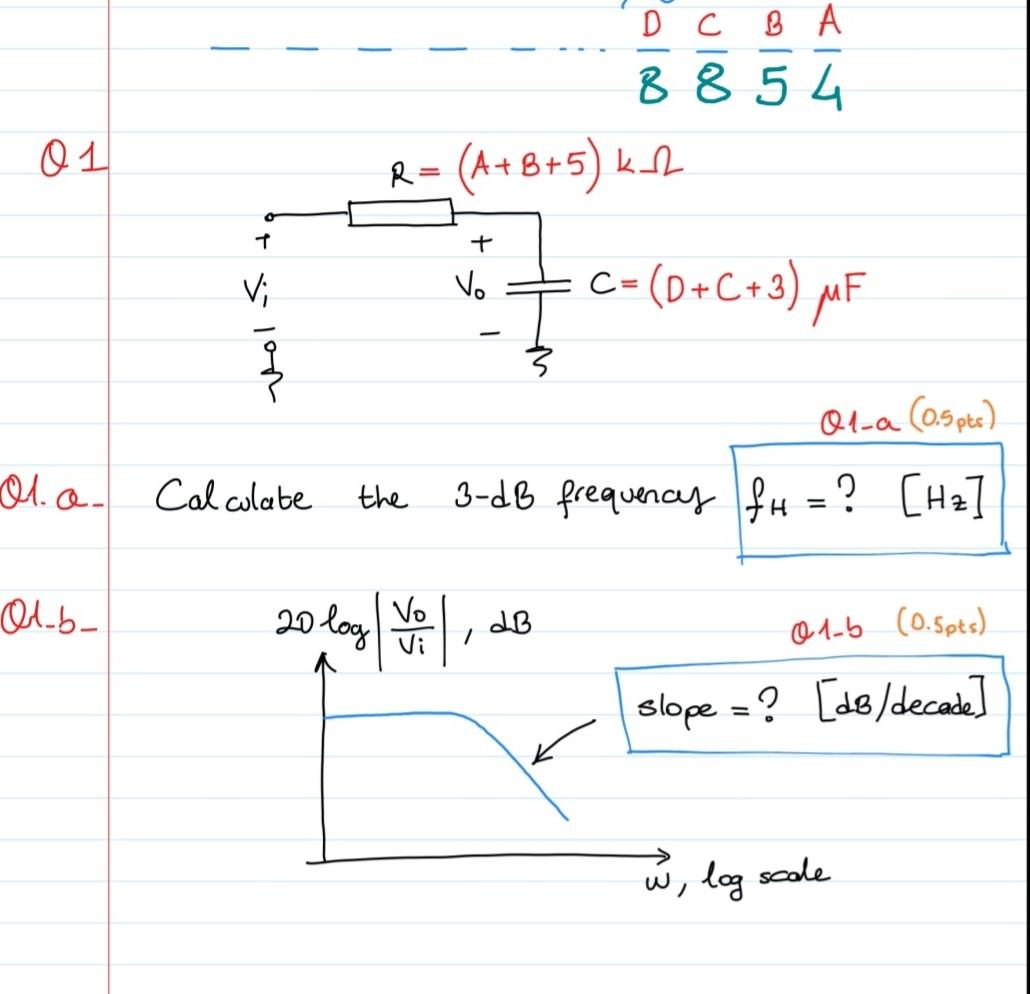 D C B A
8 8 5 4
Q1
R = (A+B+5) kΩ
+ +
Vi Vo C = (D+C+3) μF
- -
Q1-a (0.5pts)
Q1.a- Calculate the 3-dB frequency fH = ? [Hz]
Q1-b- 20 log |Vo/Vi| , dB
Q1-b (0.5pts)
slope = ? [dB/decade]
w, log scale